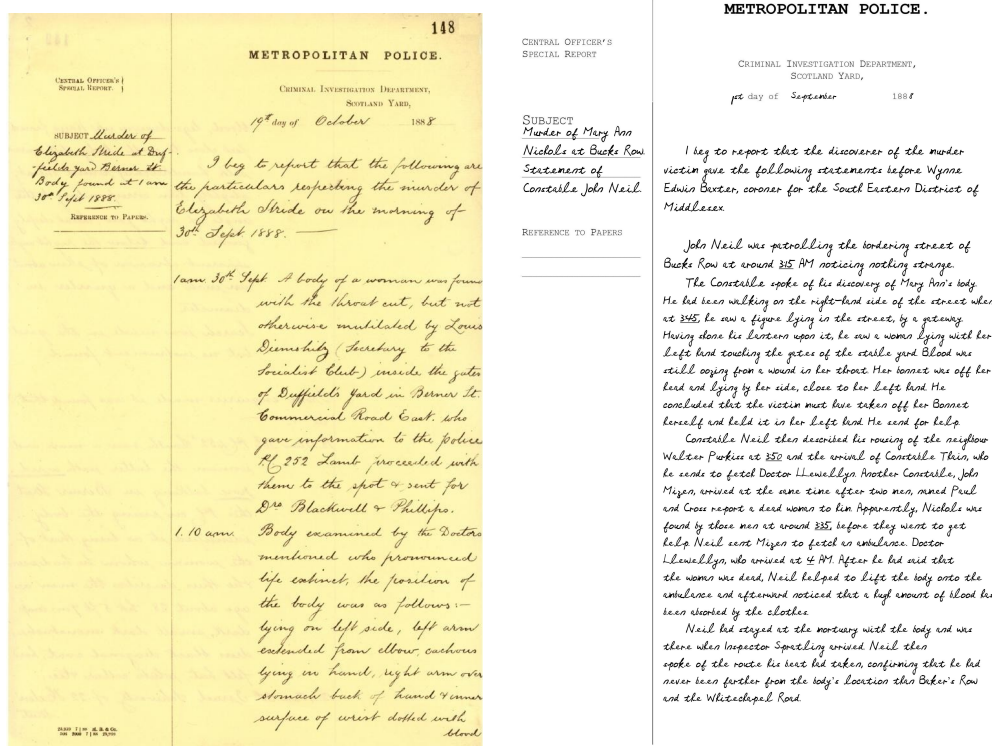 148
METROPOLITAN POLICE.
CENTRAL OFFICER'S
SPECIAL REPORT.
CRIMINAL INVESTIGATION DEPARTMENT,
SCOTLAND YARD,
19th day of October 1888
SUBJECT Murder of
Elizabeth Stride at Duf-
fields yard Berner St.
Body found at 1 am
30th Sept 1888.
REFERENCE TO PAPERS.
I beg to report that the following are
the particulars respecting the murder of
Elizabeth Stride on the morning of
30th Sept 1888.
1am 30th Sept A body of a woman was found
with the throat cut, but not
otherwise mutilated by Louis
Diemshitz (Secretary to the
Socialist Club) inside the gates
of Duffield's Yard in Berner St.
Commercial Road East, who
gave information to the police
P.C. 252 Lamb proceeded with
them to the spot & sent for
Drs Blackwell & Phillips.
1. 10 am. Body examined by the Doctors
mentioned who pronounced
life extinct, the position of
the body was as follows:—
lying on left side, left arm
extended from elbow, cachous
lying in hand, right arm over
stomach back of hand & inner
surface of wrist dotted with
blood
METROPOLITAN POLICE.
CENTRAL OFFICER'S
SPECIAL REPORT
CRIMINAL INVESTIGATION DEPARTMENT,
SCOTLAND YARD,
1st day of September 1888
SUBJECT
Murder of Mary Ann
Nichols at Bucks Row.
Statement of
Constable John Neil
REFERENCE TO PAPERS
I beg to report that the discoverer of the murder
victim gave the following statements before Wynne
Edwin Baxter, coroner for the South Eastern District of
Middlesex.
John Neil was patrolling the bordering street of
Bucks Row at around 315 AM noticing nothing strange.
The Constable spoke of his discovery of Mary Ann's body.
He had been walking on the right-hand side of the street when
at 345, he saw a figure lying in the street, by a gateway.
Having shone his lantern upon it, he saw a woman lying with her
left hand touching the gates of the stable yard. Blood was
still oozing from a wound in her throat. Her bonnet was off her
head and lying by her side, close to her left hand. He
concluded that the victim must have taken off her Bonnet
herself and held it in her left hand. He send for help.
Constable Neil then described his rousing of the neighbour
Walter Purkiss at 350 and the arrival of Constable Thain, who
he sends to fetch Doctor LLewellyn. Another Constable, John
Mizen, arrived at the same time after two men, named Paul
and Cross report a dead woman to him. Apparently, Nichols was
found by those men at around 335, before they went to get
help. Neil sent Mizen to fetch an ambulance. Doctor
LLewellyn, who arrived at 4 AM. After he had said that
the woman was dead, Neil helped to lift the body onto the
ambulance and afterward noticed that a high amount of blood has
been absorbed by the clothes.
Neil had stayed at the mortuary with the body and was
there when Inspector Spratling arrived. Neil then
spoke of the route his beat had taken, confirming that he had
never been farther from the body's location than Baker's Row
and the Whitechapel Road.